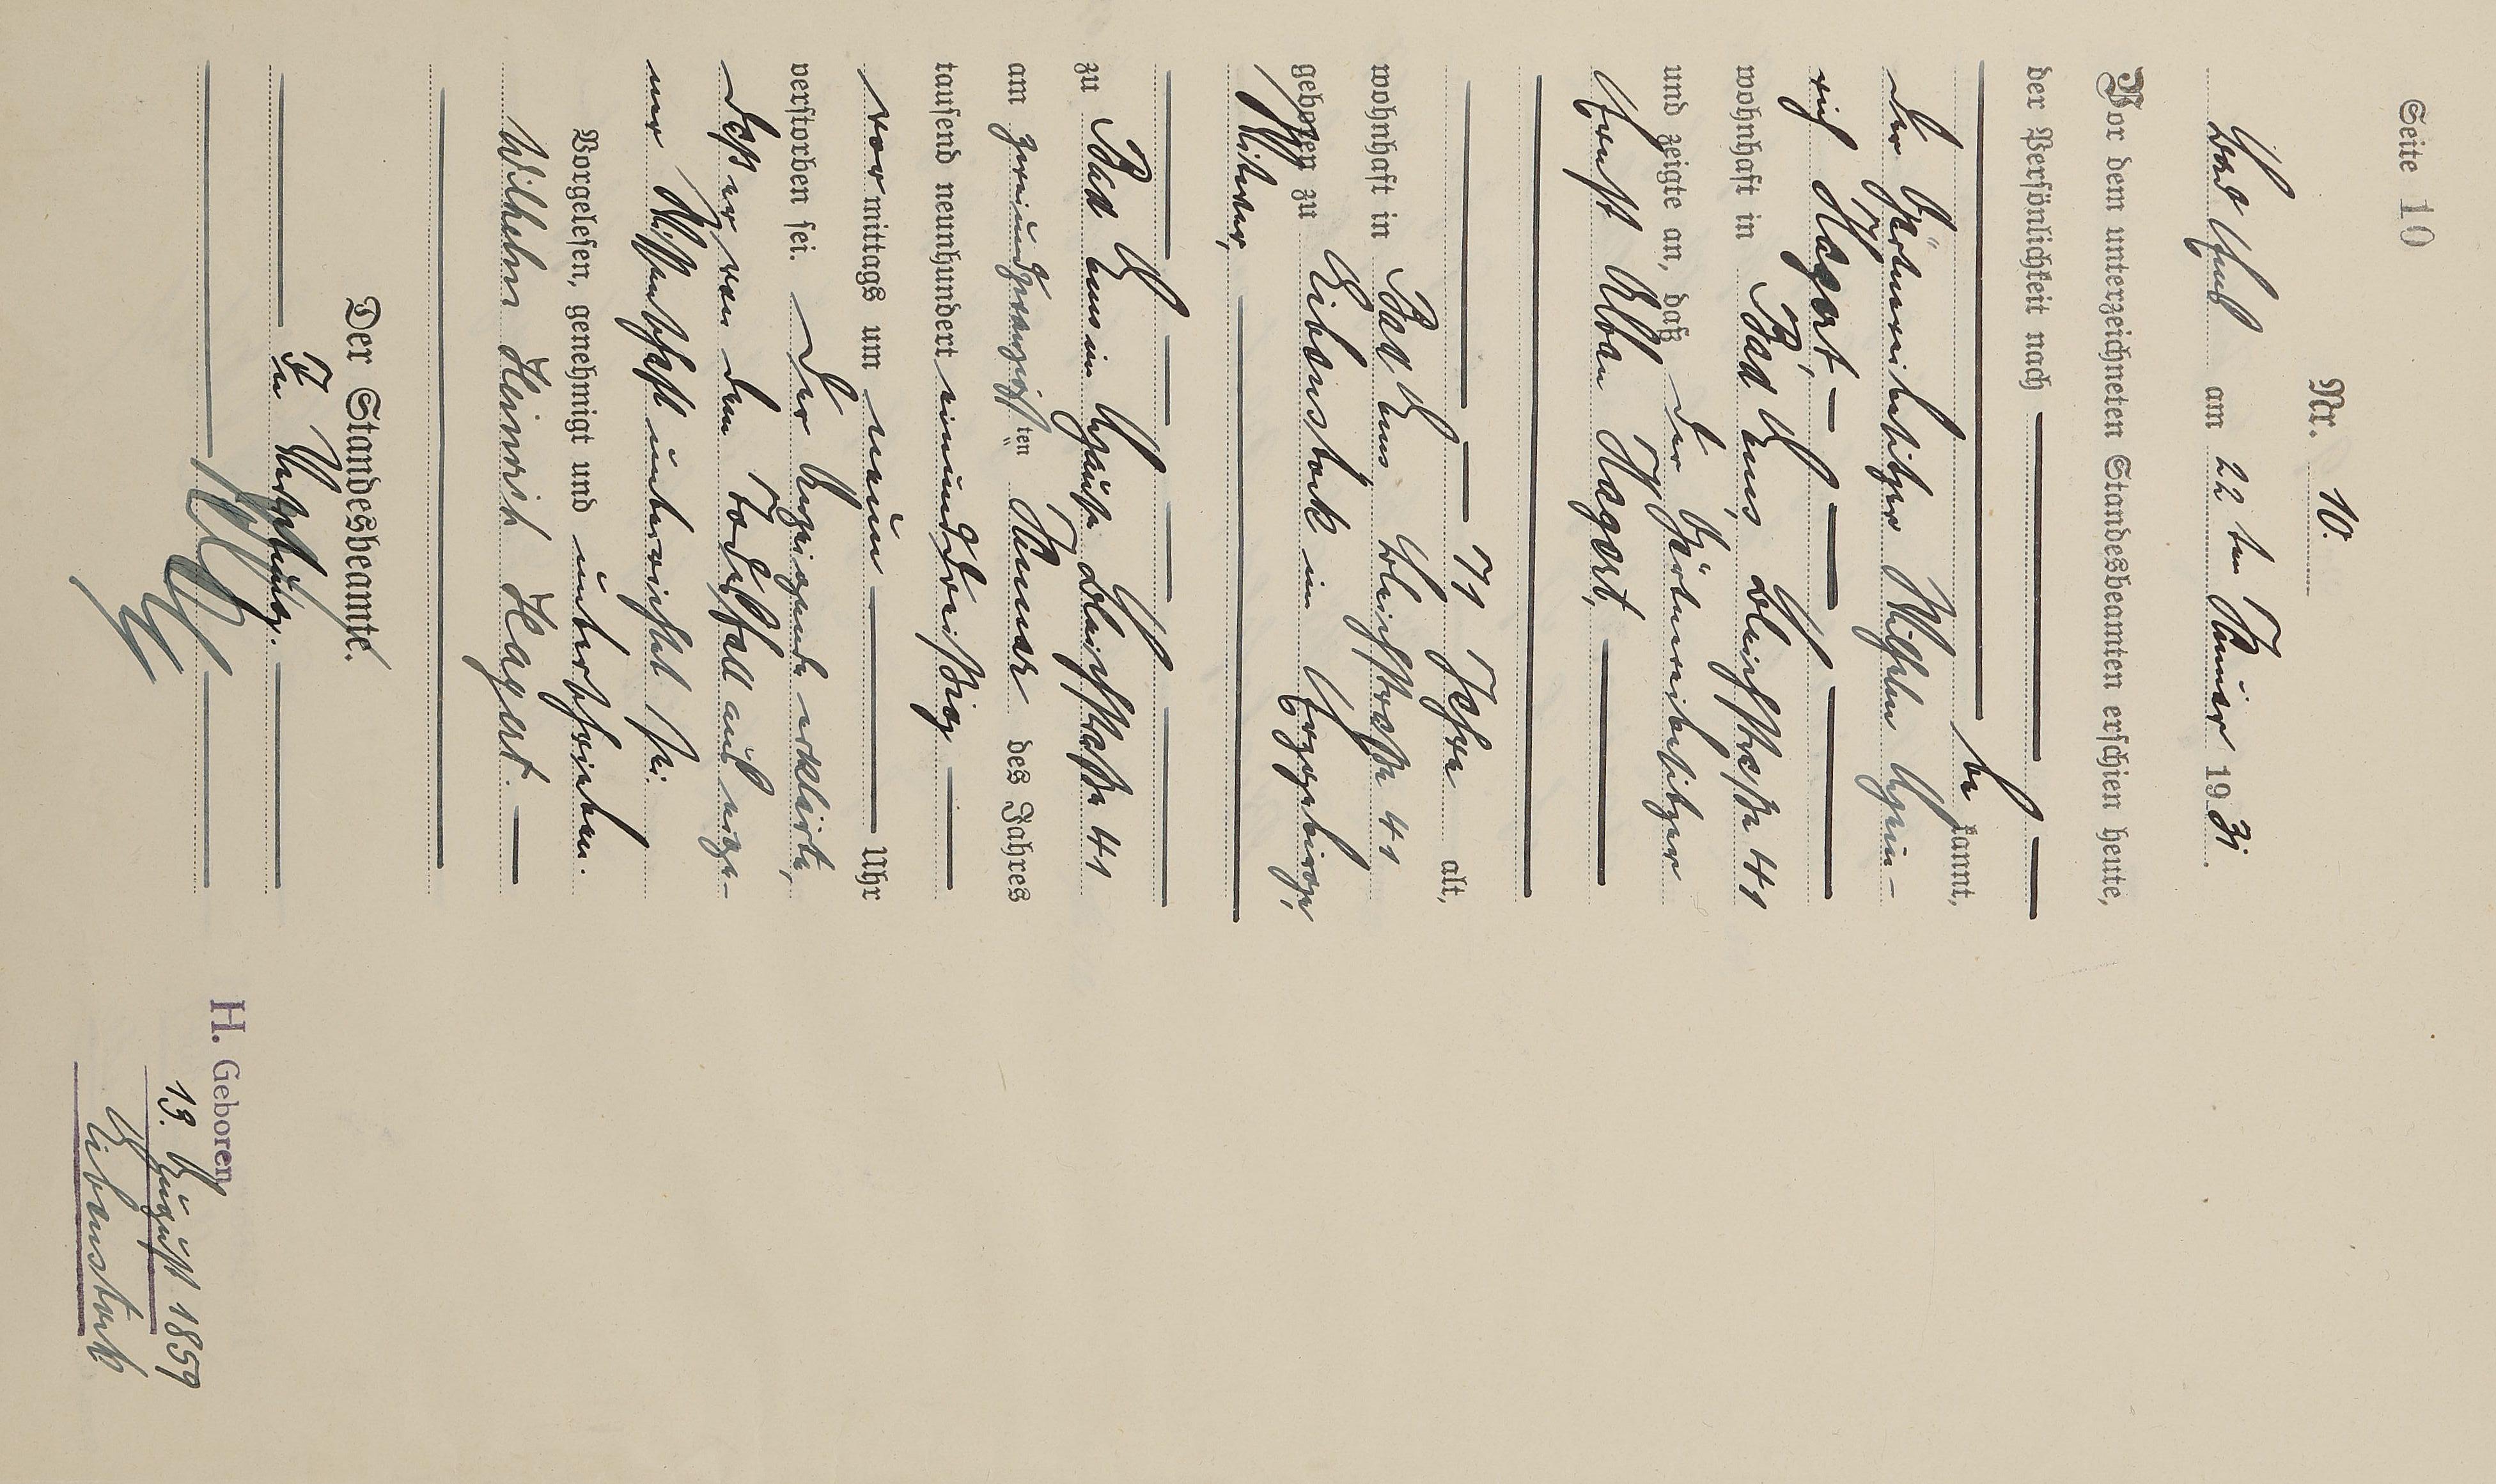 Seite 10
Nr. 10.
am 22 ten Januar 1931.
Vor dem unterzeichneten Standesbeamten erschien heute,
der Persönlichkeit nach
be kannt,
der Gärtnereibesitzer Wilhelm Hein-
rich Hagert
wohnhaft in Bad Ems, Bleichstraße 41
und zeigte an, daß der Gärtnereibesitzer
Ernst Alban Hagert,
71 Jahre alt,
wohnhaft in Bad Ems Bleichstraße 41
geboren zu Eibenstock im Erzgebirge,
Witwer,
zu Bad Ems im Hause Bleichstraße 41
am zweiundzwanzigsten Januar des Jahres
tausend neunhundert einunddreißig
vormittags um neun Uhr
verstorben sei. Der Anzeigende erklärte,
daß er von dem Todesfall aus eige-
ner Wissenschaft unterrichtet sei.
Vorgelesen, genehmigt und unterschrieben.
Wilhelm Heinrich Hagert.
Der Standesbeamte.
In Vertretung.
H. Geboren
13. August 1859
Eibenstock